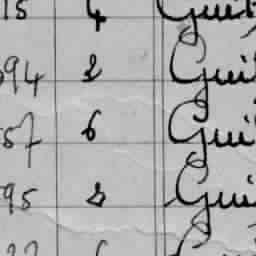 15 4 Guit
94 2 Gui
57 6 Gui
95 2 Gui